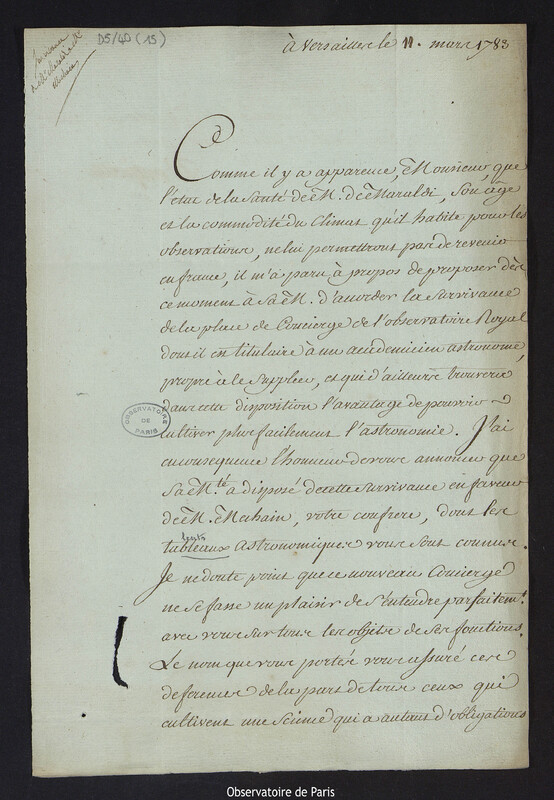 D5/40 (15)
à Versailles le 11. mars 1783
Survivance
Comme il y a apparence, Monsieur, que
l'état de la Santé de M. de Maraldi, Son âge
et la commodité du Climat qu'il habite pour les
observations, ne lui permettront pas de revenir
en france, il m'a paru à propos de proposer dès
ce moment à Sa M. d'accorder la Survivance
de la place de Concierge de l'observatoire Royal
dont il est titulaire à un academicien astronome,
propre à le Supléer, et qui d'ailleurs trouverà
dans cette disposition l'avantage de pouvoir
cultiver plus facilement l'astronomie. J'ai
en consequence l'honneur de vous annoncer que
Sa M.té a disposé de cette Survivance en faveur
de M. Mechain, votre confrere, dont les
tableaux astronomiques vous sont connus.
Je ne doute point que ce nouveau Concierge
ne se fasse un plaisir de S'entendre parfaitemt.
avec vous sur tous les objets de ses fonctions.
Le nom que vous portés vous assure ces
deferences de la part de tous ceux qui
cultivent une Science qui a autant d'obligations
OBSERVATOIRE
DE
PARIS
Observatoire de Paris